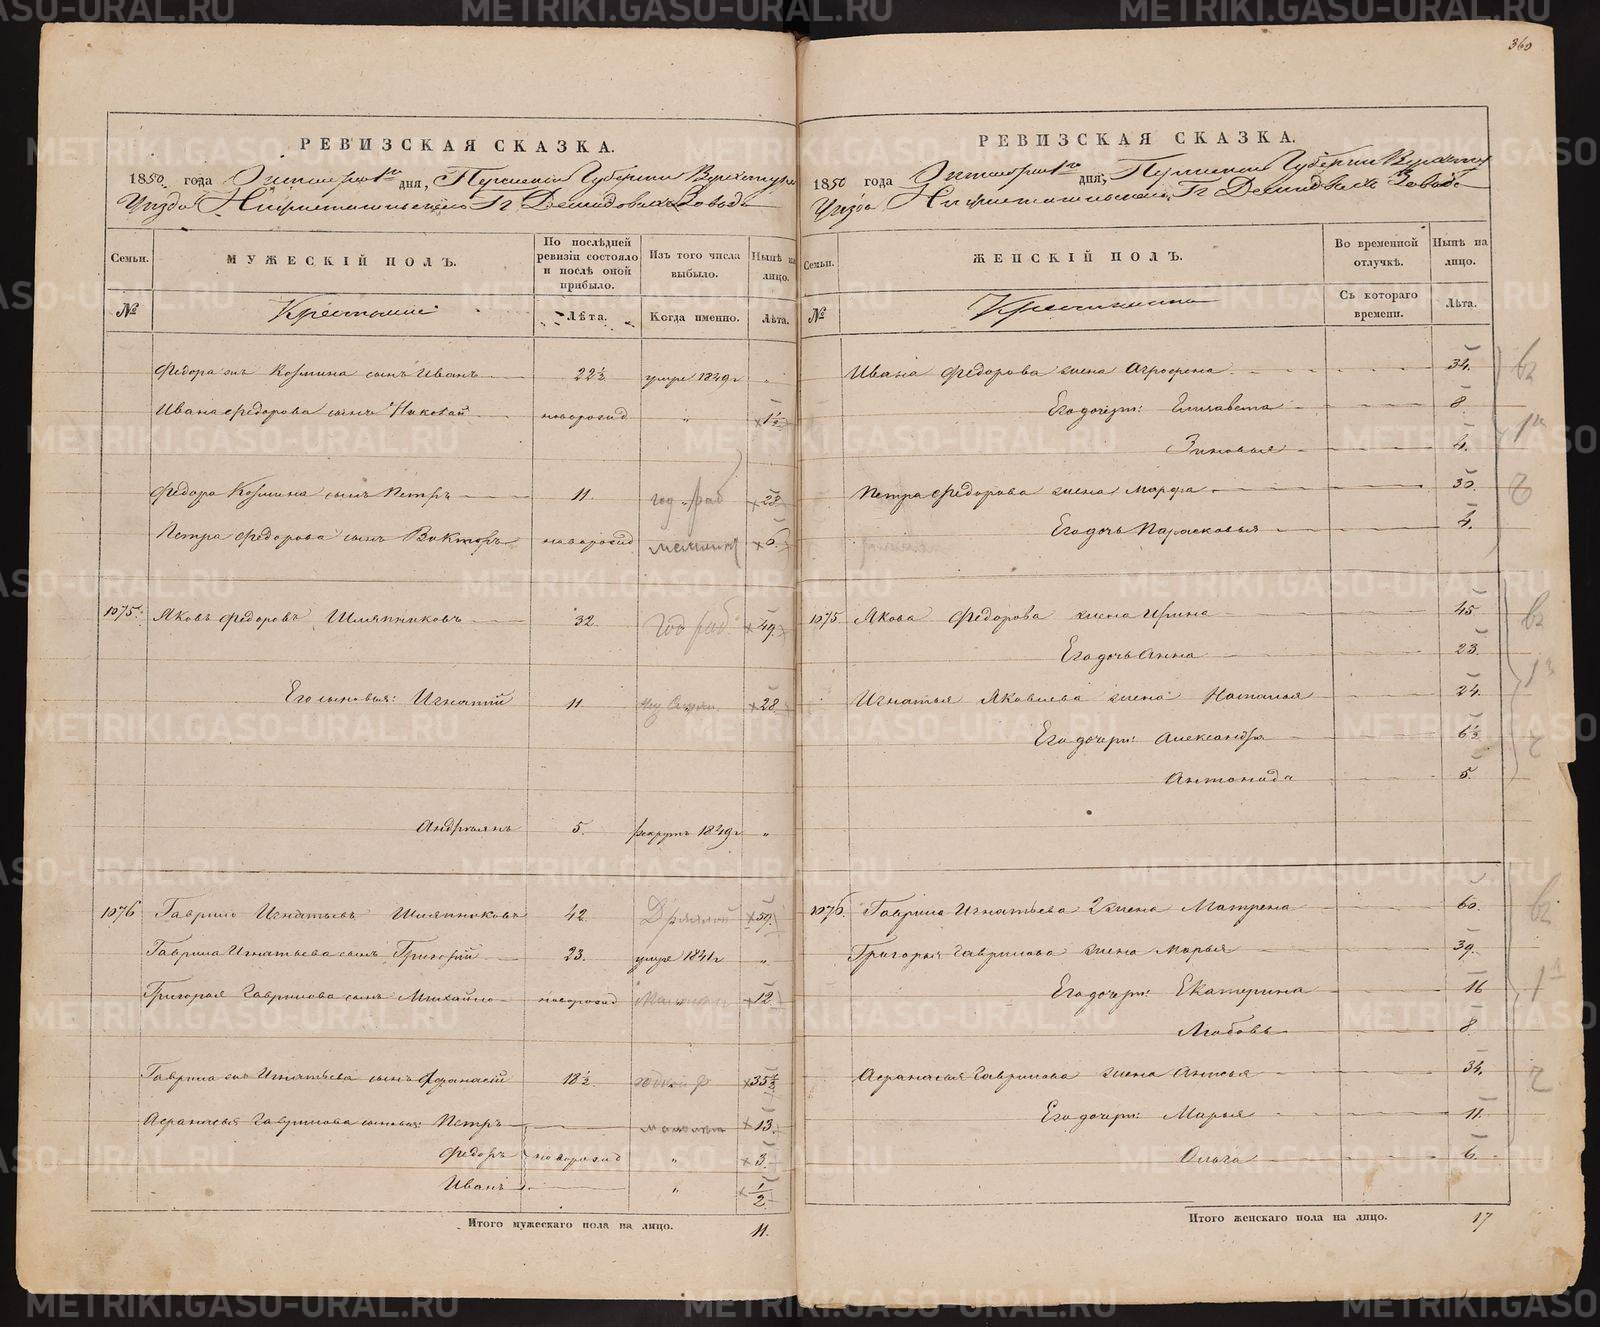 360
РЕВИЗСКАЯ СКАЗКА.
1850 года Октября 1го дня, Пермской Губернии Верхотур.
Уезда Нижнетагильского Гг Демидовыхъ Завода
Семьи.
МУЖЕСКІЙ ПОЛЪ.
По послѣдней ревизіи состояло и послѣ оной прибыло.
Изъ того числа выбыло.
Нынѣ на лицо.
№
Крестьяне
Лѣта.
Когда именно.
Лѣта.
Федора Козмина сынъ Иванъ 22½ умре 1849 г „
Ивана Федорова сынъ Николай новорожд „ 1½
Федора Козмина сынъ Петръ 11. год. раб 28.
Петра Федорова сынъ Викторъ новорожд 6.
1075. Яковъ Федоровъ Шляпниковъ 32. год раб 49.
Его сыновья: Игнатій 11. 28.
Андреянъ 5. рекрутъ 1849 г „
1076 Гаврило Игнатьевъ Шляпниковъ 42. 59.
Гаврила Игнатьева сынъ Григорій 23. умре 1841 г „
Григорья Гаврилова сынъ Михайло новорожд 12.
Гаврила Игнатьева сынъ Афанасій 18½. 35½
Афанасья Гаврилова сыновья: Петръ 13.
Федоръ новорожд „ 3.
Иванъ „ ½
Итого мужескаго пола на лицо. 11.
РЕВИЗСКАЯ СКАЗКА.
1850 года Октября 1го дня, Пермской Губернии Верхотур
Уезда Нижнетагильского Гг Демидовыхъ Завода
Семьи.
ЖЕНСКІЙ ПОЛЪ.
Во временной отлучкѣ.
Нынѣ на лицо.
№
Крестьянки
Съ котораго времени.
Лѣта.
Ивана Федорова жена Агрофена 34.
Его дочери: Елизавета 8.
Зиновья 4.
Петра Федорова жена Марфа 30.
Его дочь Парасковья 4.
1075 Якова Федорова жена Ирина 45
Его дочь Анна 23.
Игнатья Яковлева жена Наталья 24.
Его дочери: Александра 6½
Антонида 5.
1076. Гаврила Игнатьева 2 жена Матрена 60.
Григорья Гаврилова жена Марья 39.
Его дочери: Екатерина 16
Любовь 8
Афанасья Гаврилова жена Анисья 34.
Его дочери: Марья 11.
Ольга 6.
Итого женскаго пола на лицо. 17
METRIKI.GASO-URAL.RU